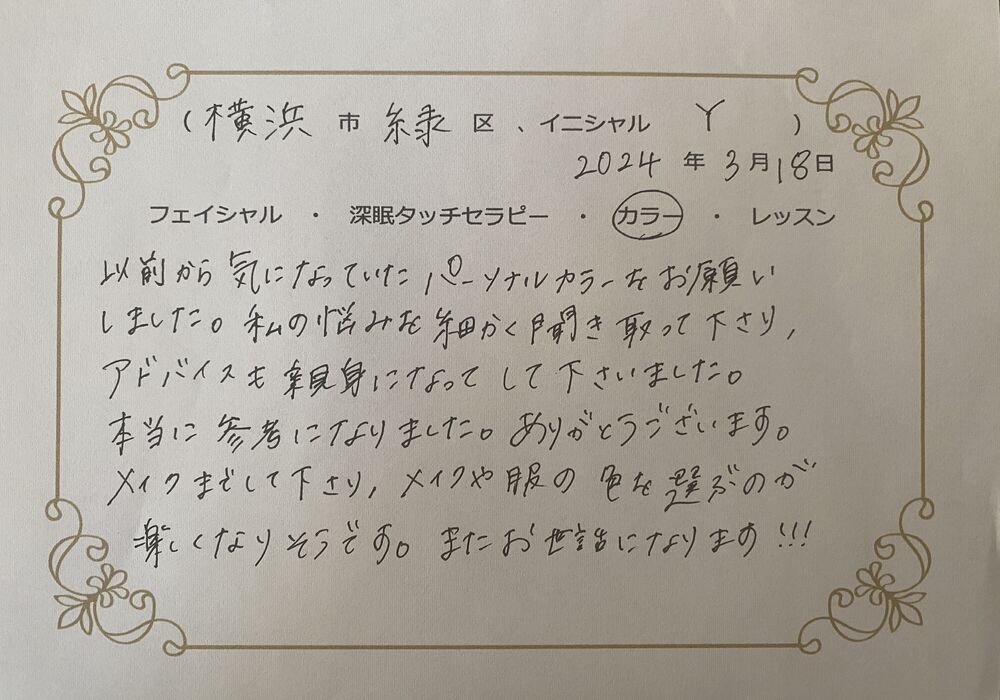 (横浜 市 緑 区 、イニシャル Y )
2024 年 3 月 18 日
フェイシャル ・ 深眠タッチセラピー ・ カラー ・ レッスン
以前から気になっていたパーソナルカラーをお願い
しました。私の悩みを細かく聞き取って下さり,
アドバイスも親身になってして下さいました。
本当に参考になりました。ありがとうございます。
メイクまでして下さり, メイクや服の色を選ぶのが
楽しくなりそうです。またお世話になります!!!